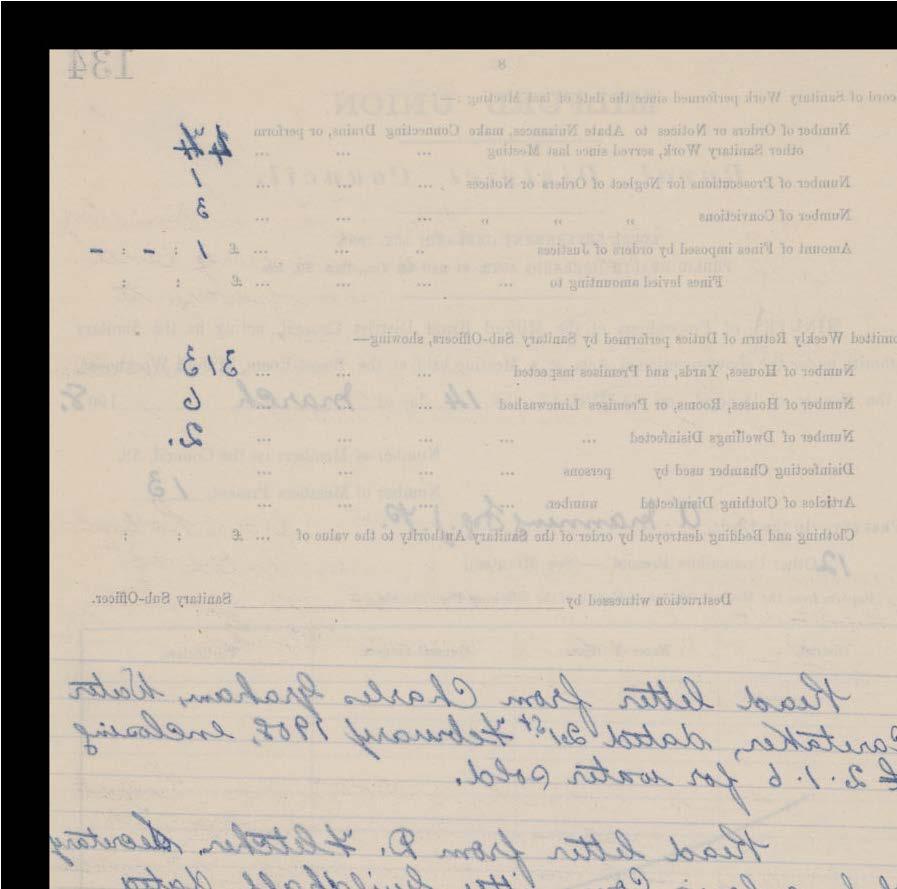 134
8
Record of Sanitary Work performed since the date of last Meeting:
Number of Orders or Notices to Abate Nuisances, make Connecting Drains, or perform
other Sanitary Work, served since last Meeting ... ... ... 44
Number of Prosecutions for Neglect of Orders or Notices ... ... ... 1
Number of Convictions " " " ... ... ... 3
Amount of Fines imposed by orders of Justices ... ... ... £ 1 : - : -
Fines levied amounting to ... ... ... £ : :
Submitted Weekly Return of Duties performed by Sanitary Sub-Officers, showing—
Number of Houses, Yards, and Premises inspected ... ... ... 313
Number of Houses, Rooms, or Premises Limewashed ... ... ... 6
Number of Dwellings Disinfected ... ... ... ... 2.
Disinfecting Chamber used by persons ... ... ... ...
Articles of Clothing Disinfected number ... ... ... ...
Clothing and Bedding destroyed by order of the Sanitary Authority to the value of ... £ : :
Destruction witnessed by Sanitary Sub-Officer.
Read letter from Charles Graham, Water
Caretaker, dated 21st February 1908, enclosing
£2.1.6 for water sold.
Read letter from D. Fletcher, Secretary